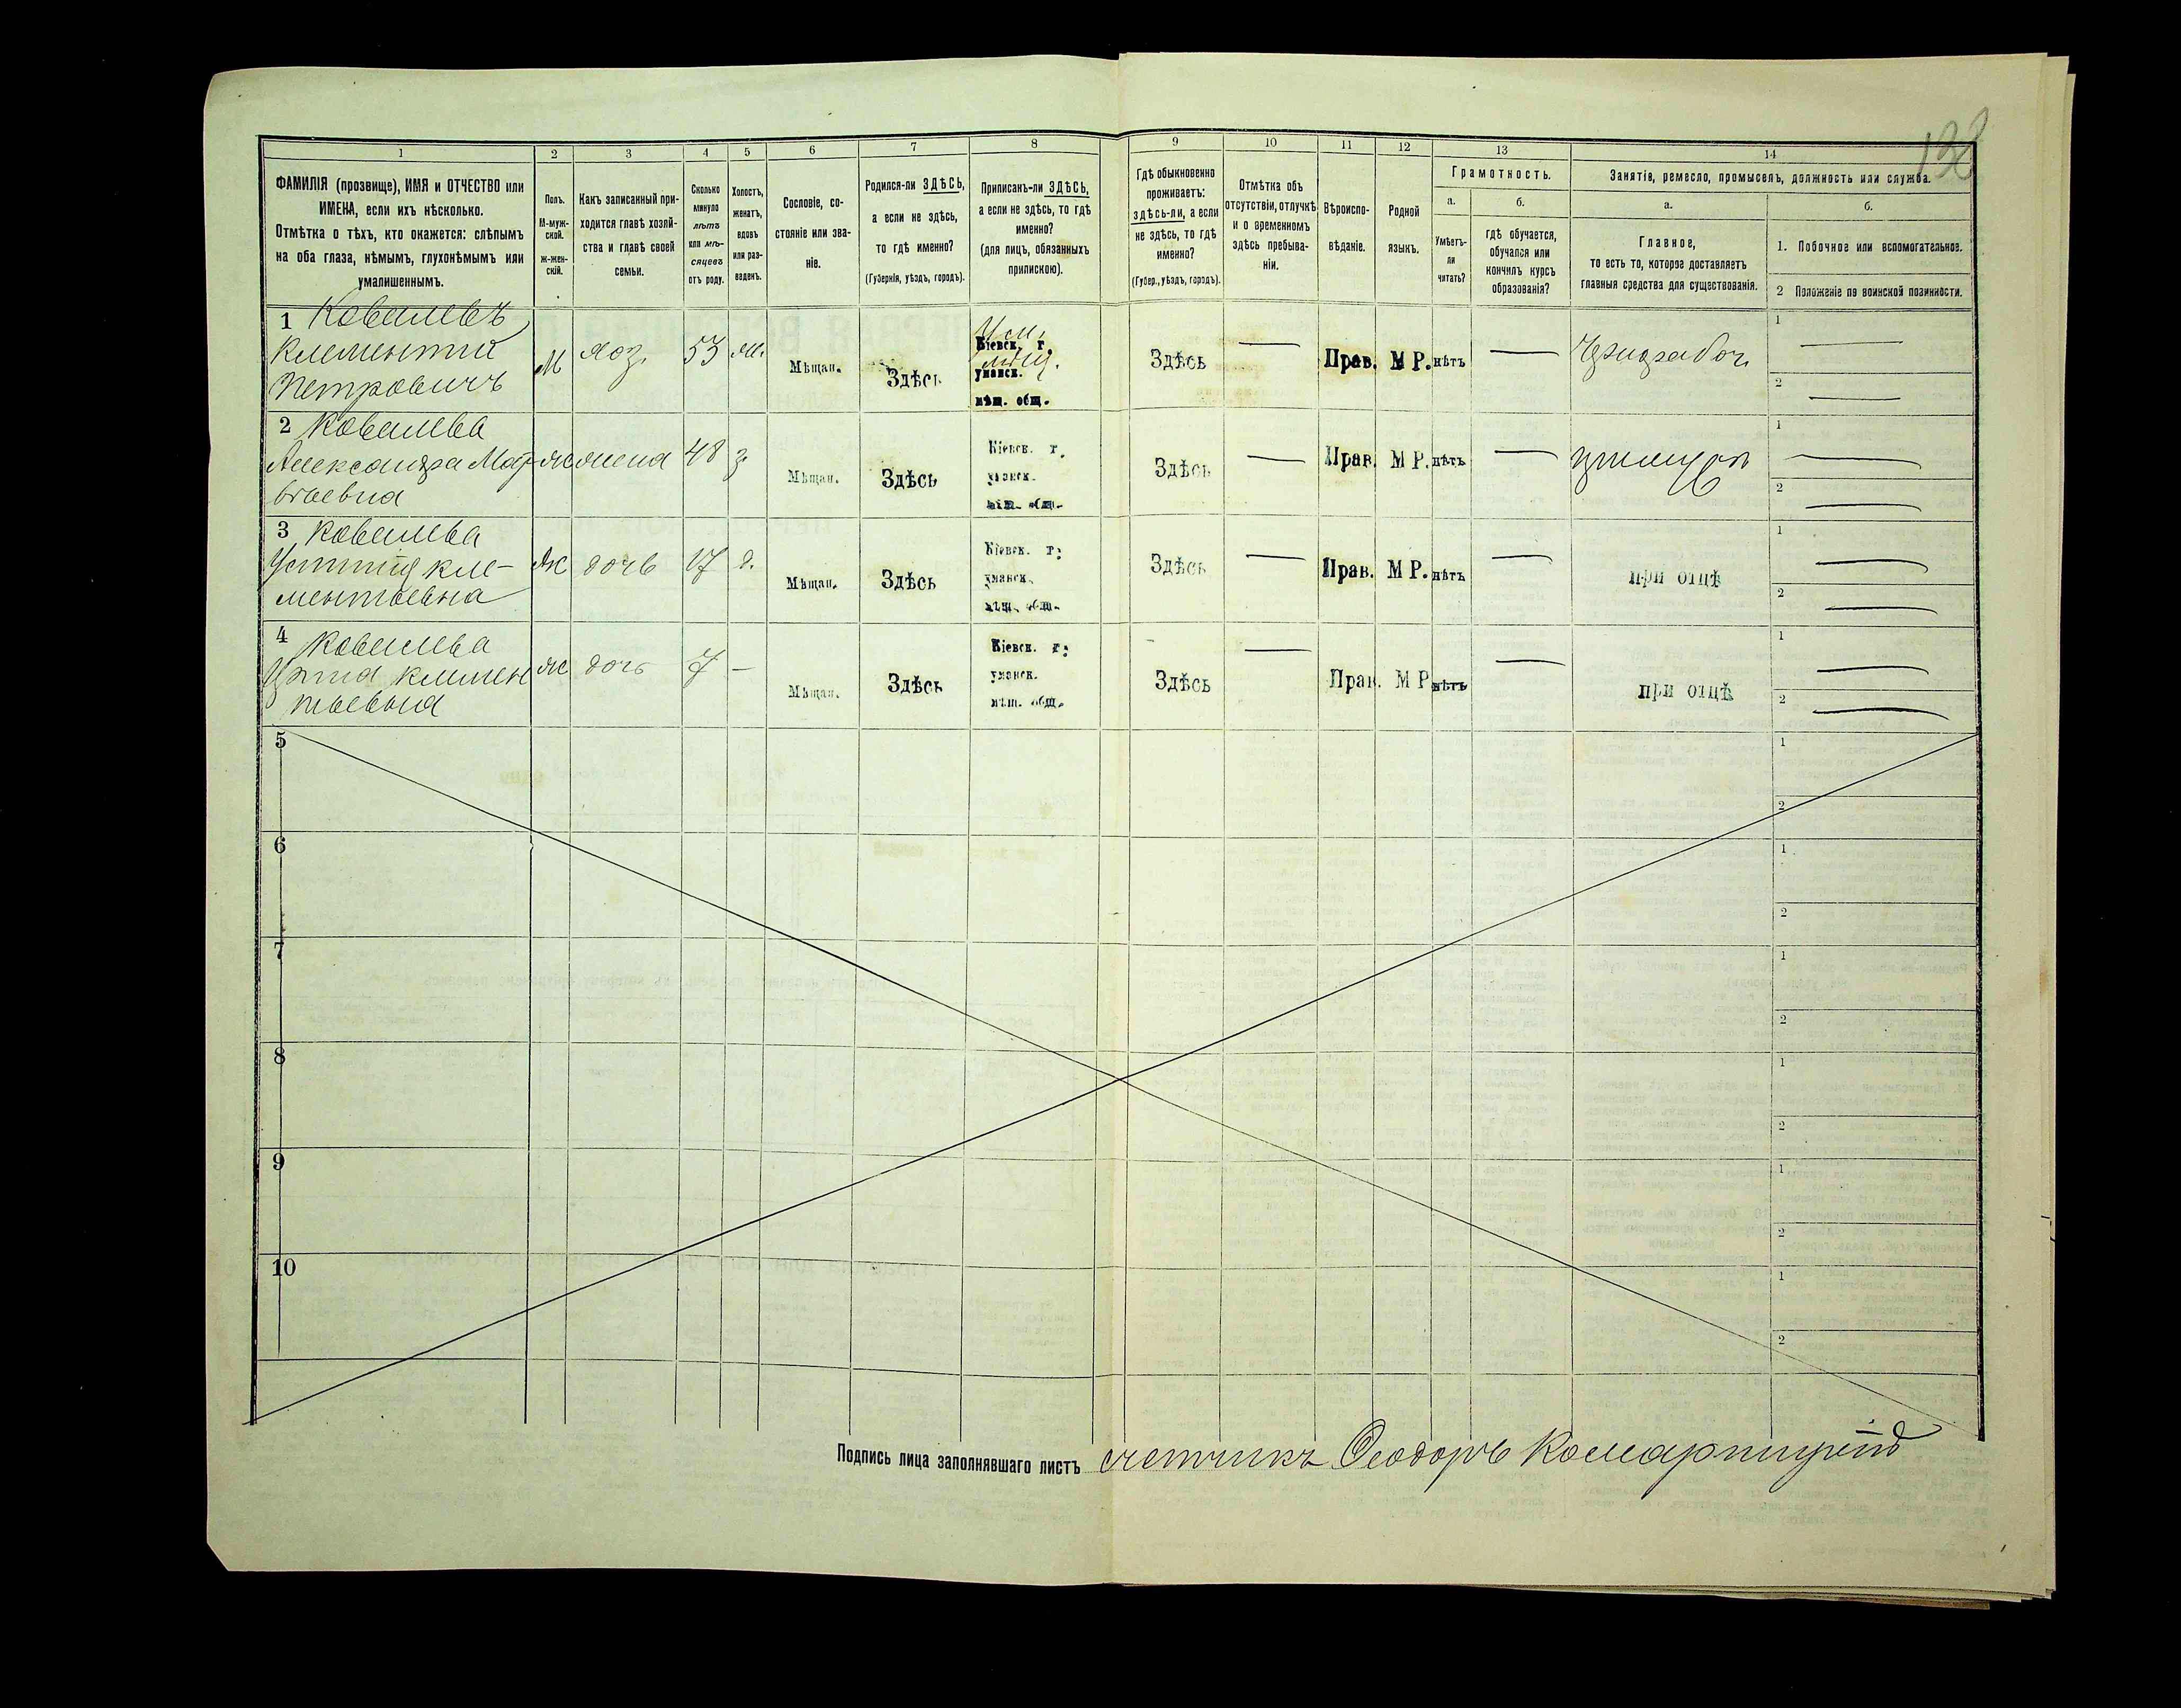 138
1 2 3 4 5 6 7 8 9 10 11 12 13 14
ФАМИЛІЯ (прозвище), ИМЯ и ОТЧЕСТВО или
ИМЕНА, если ихъ нѣсколько.
Отмѣтка о тѣхъ, кто окажется: слѣпымъ
на оба глаза, нѣмымъ, глухонѣмымъ или
умалишеннымъ.
Полъ.
М-муж-
ской.
ж-жен-
скій.
Какъ записанный при-
ходится главѣ хозяй-
ства и главѣ своей
семьи.
Сколько
минуло
лѣтъ
или мѣ-
сяцевъ
отъ роду.
Холостъ,
женатъ,
вдовъ
или раз-
веденъ.
Сословіе, со-
стояніе или зва-
ніе.
Родился-ли ЗДѢСЬ,
а если не здѣсь,
то гдѣ именно?
(Губернія, уѣздъ, городъ).
Приписанъ-ли ЗДѢСЬ,
а если не здѣсь, то гдѣ
именно?
(для лицъ, обязанныхъ
припискою).
Гдѣ обыкновенно
проживаетъ:
здѣсь-ли, а если
не здѣсь, то гдѣ
именно?
(Губер., уѣздъ, городъ).
Отмѣтка объ
отсутствіи, отлучкѣ
и о временномъ
здѣсь пребыва-
ніи.
Вѣроиспо-
вѣданіе.
Родной
языкъ.
Грамотность.
а.
Умѣетъ-
ли
читать?
б.
гдѣ обучается,
обучался или
кончилъ курсъ
образованія?
Занятія, ремесло, промыселъ, должность или служба.
а.
Главное,
то есть то, которое доставляетъ
главныя средства для существованія.
б.
1. Побочное или вспомогательное.
2 Положеніе по воинской повинности.
1 Ковалевъ
Клементій
Петровичъ
М хоз. 53 ж. Мѣщан. Здѣсь
Кіевск. г.
уманск.
мѣщ. общ.
Здѣсь — Прав. М Р. нѣтъ — Чернораб.
1 —
2 —
2 Ковалева
Александра Мат-
вѣевна
ж жена 48 з. Мѣщан. Здѣсь
Кіевск. г.
уманск.
мѣщ. общ.
Здѣсь — Прав. М Р. нѣтъ —
1 —
2 —
3 Ковалева
Устинія Кле-
ментьевна
ж дочь 17 д. Мѣщан. Здѣсь
Кіевск. г.
уманск.
мѣщ. общ.
Здѣсь — Прав. М Р. нѣтъ — при отцѣ
1 —
2 —
4 Ковалева
Климен
тьевна
ж дочь 7 — Мѣщан. Здѣсь
Кіевск. г.
уманск.
мѣщ. общ.
Здѣсь — Прав. М Р. нѣтъ — при отцѣ
1 —
2 —
5 1
2
6 1
2
7 1
2
8 1
2
9 1
2
10 1
2
Подпись лица заполнявшаго листъ счетчикъ Ѳеодоръ Комарницкій